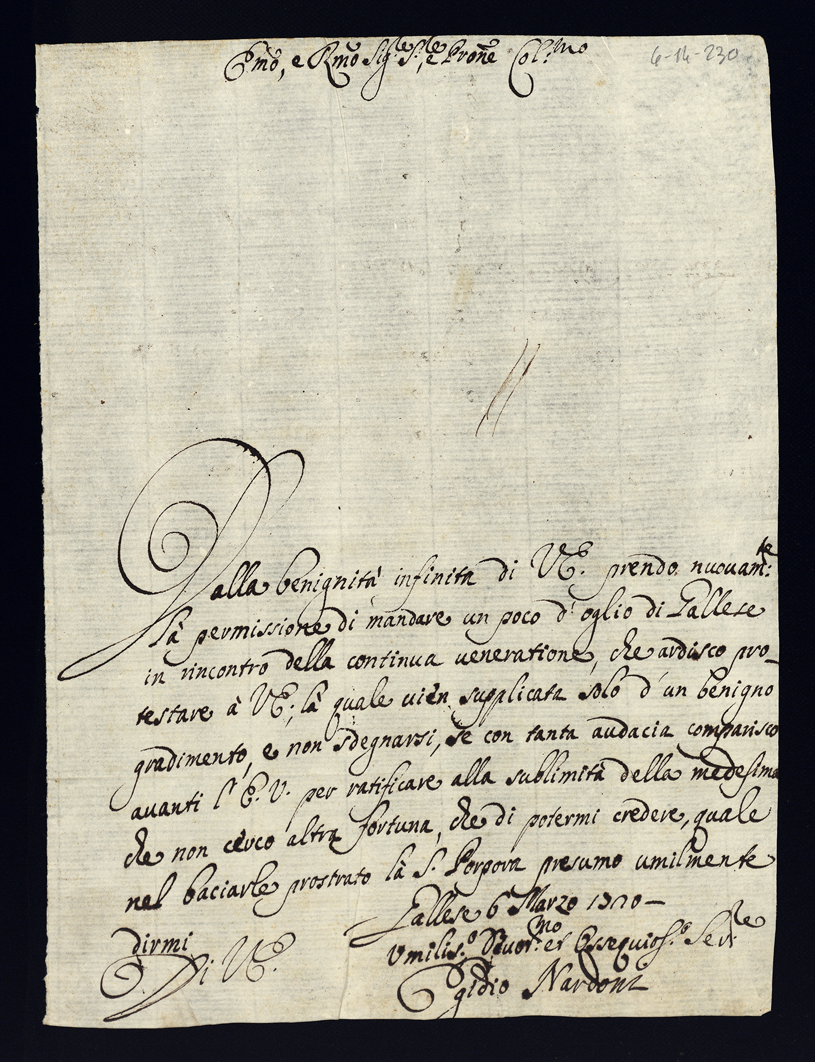 Emo, e Rmo Sig.re S.re, e Prone Col.mo
6-14-230
Dalla benignità infinita di V.E. prendo nuouam.te
là permissione di mandare un poco d'oglio di Gallese
in rincontro della continua veneratione, che ardisco pro-
testare à V.E.; là quale uièn supplicata solo d'un benigno
gradimento, e non sdegnarsi, se con tanta audacia comparisco
auanti l'E.V. per ratificare alla sublimità della medesima
che non cerco altra fortuna, che di potermi credere, quale
nel baciarle prostrato là S. Porpora presumo umilmente
dirmi Gallese 6 Marzo 1710-
Di V.E. Umilis.o Diuot.mo et Ossequios.o Ser.re
Egidio Nardoni